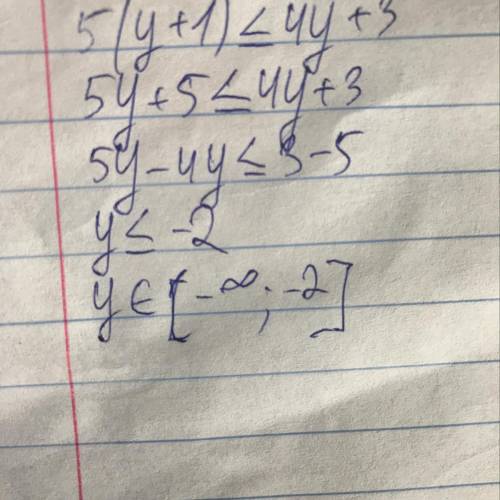 5(y+1)≤4y+3
5y+5≤4y+3
5y-4y≤3-5
y≤-2
y∈[-∞;-2]